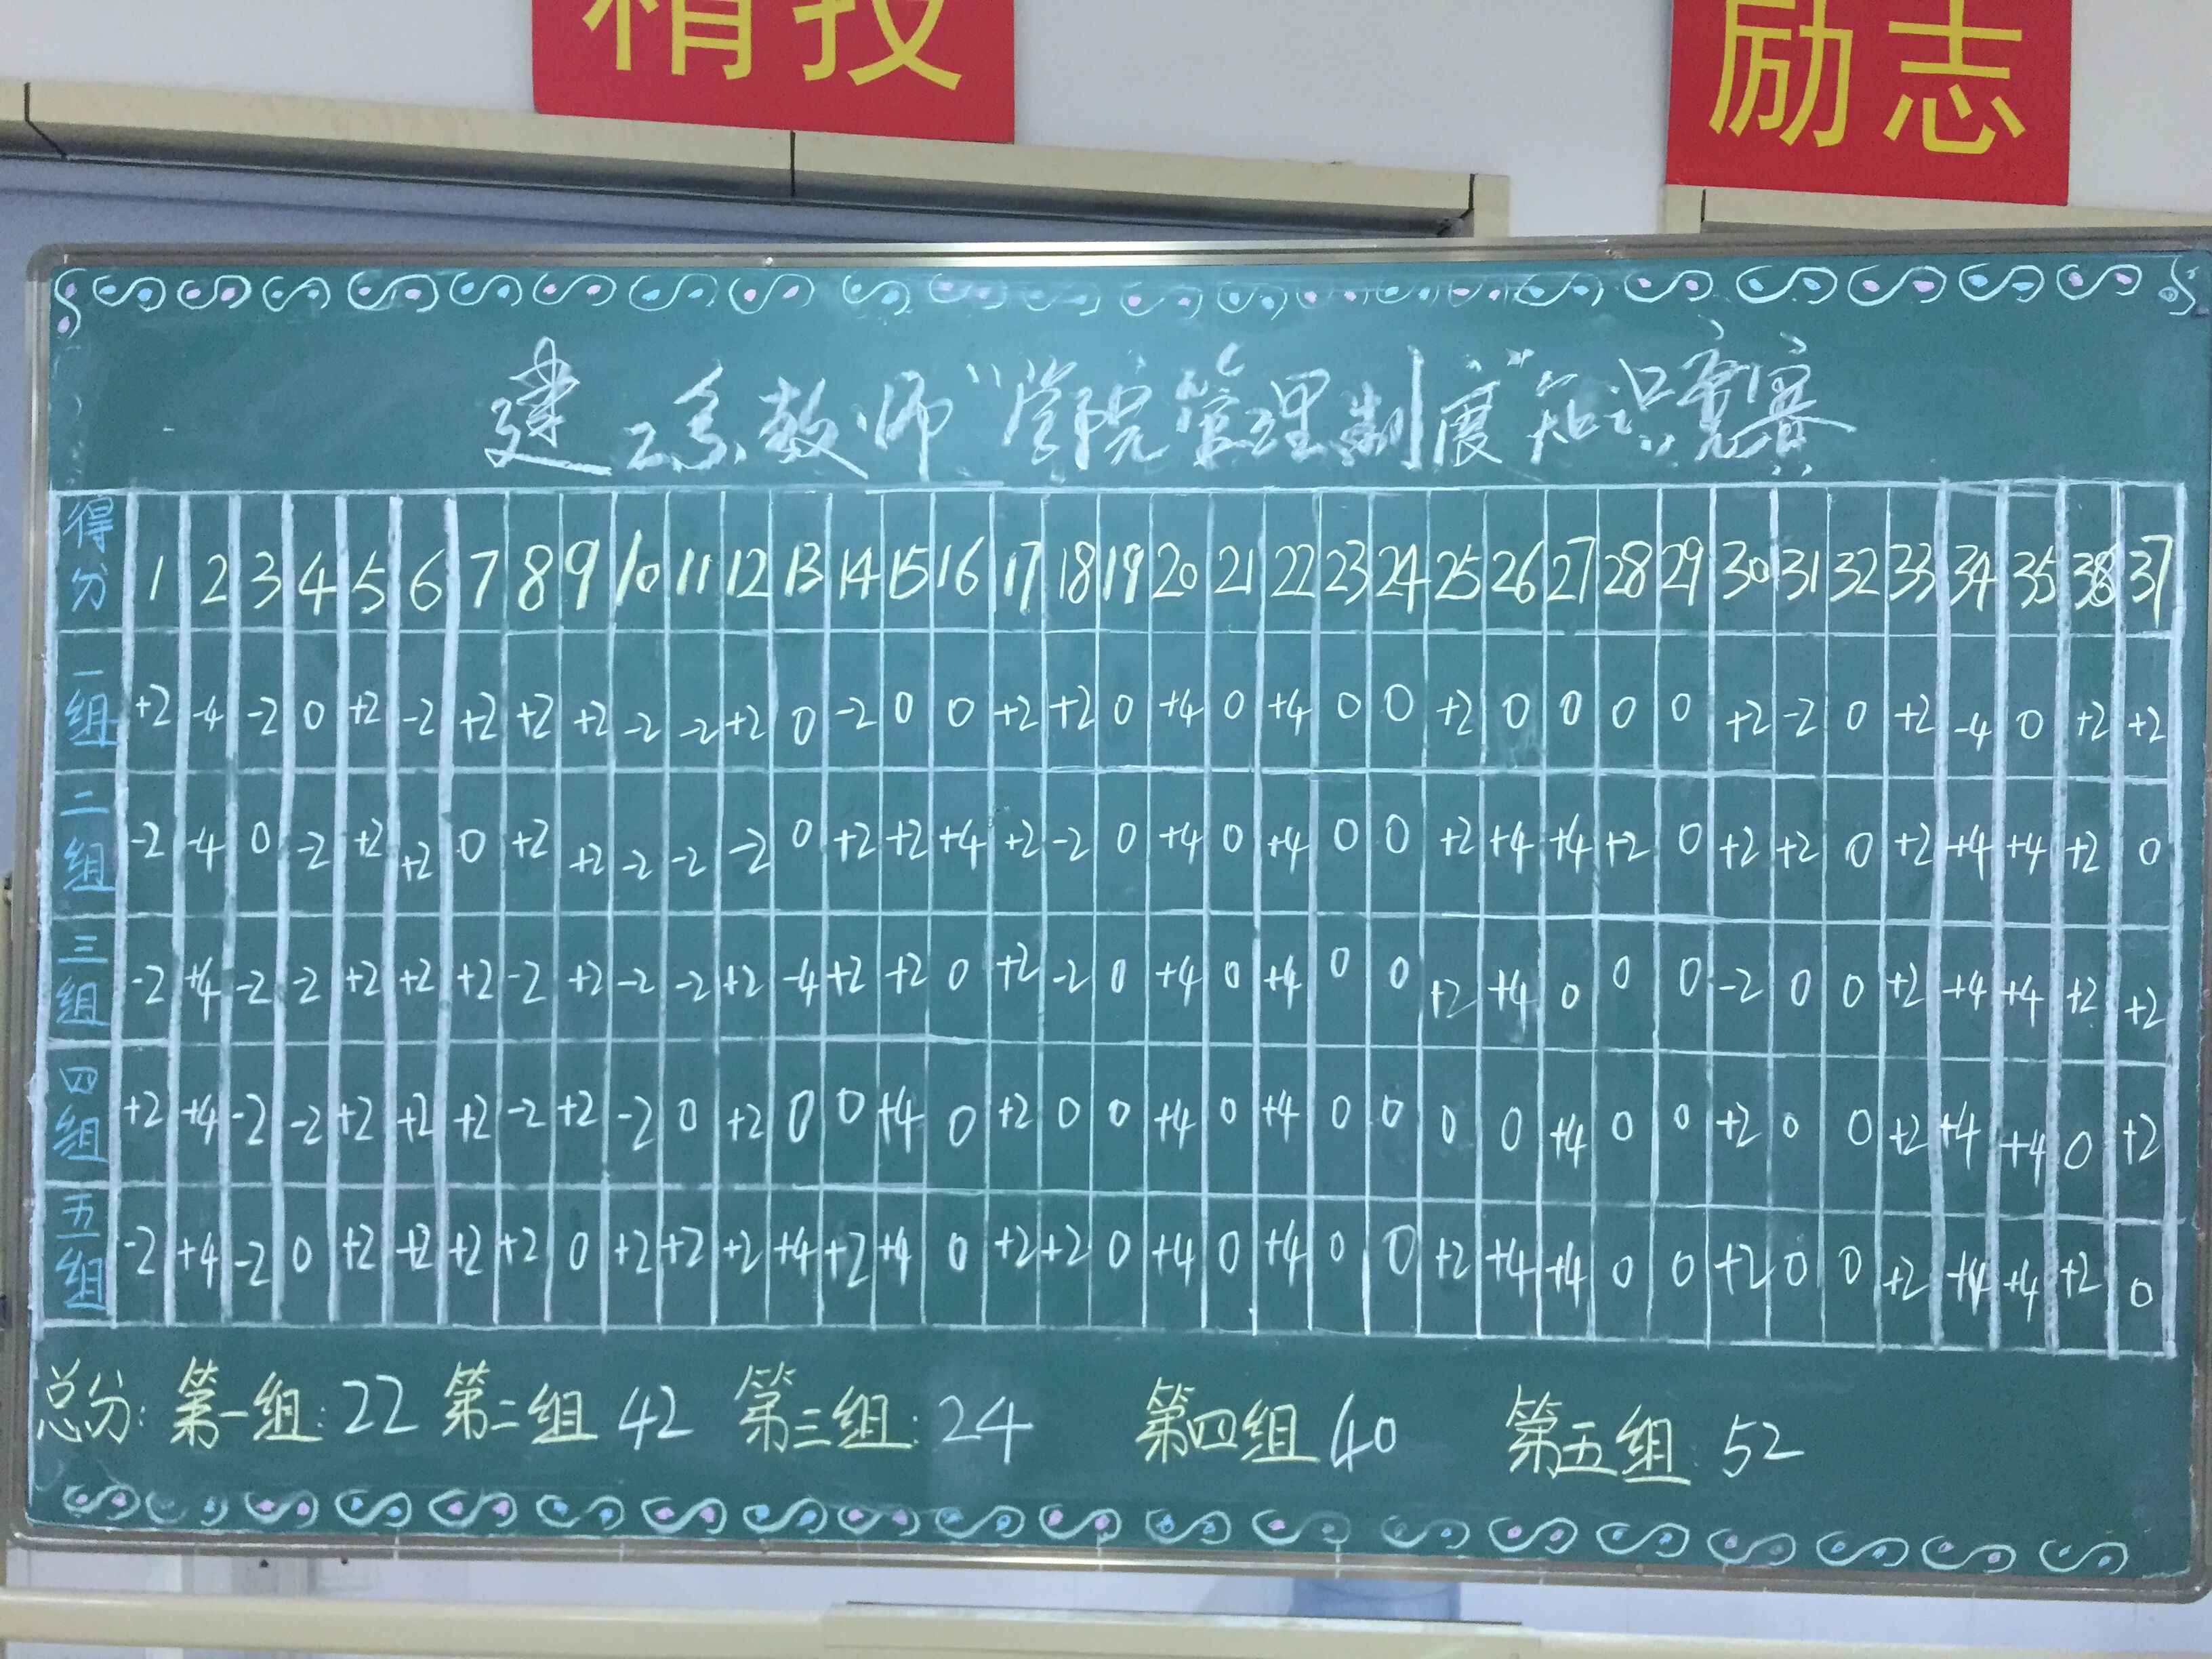 精技
励志
建工系教师“学院管理制度”知识竞赛
得分 1 2 3 4 5 6 7 8 9 10 11 12 13 14 15 16 17 18 19 20 21 22 23 24 25 26 27 28 29 30 31 32 33 34 35 38 37
一组 +2 -4 -2 0 +2 -2 +2 +2 +2 -2 -2 +2 0 -2 0 0 +2 +2 0 +4 0 +4 0 0 +2 0 0 0 0 +2 -2 0 +2 -4 0 +2 +2
二组 -2 -4 0 -2 +2 +2 0 +2 +2 -2 -2 -2 0 +2 +2 +4 +2 -2 0 +4 0 +4 0 0 +2 +4 +4 +2 0 +2 +2 0 +2 +4 +4 +2 0
三组 -2 +4 -2 -2 +2 +2 +2 -2 +2 -2 -2 +2 -4 +2 +2 0 +2 -2 0 +4 0 +4 0 0 +2 +4 0 0 0 -2 0 0 +2 +4 +4 +2 +2
四组 +2 +4 -2 -2 +2 +2 +2 -2 +2 -2 0 +2 0 0 +4 0 +2 0 0 +4 0 +4 0 0 0 0 +4 0 0 +2 0 0 +2 +4 +4 0 +2
五组 -2 +4 -2 0 +2 +2 +2 +2 0 +2 +2 +2 +4 +2 +4 0 +2 +2 0 +4 0 +4 0 0 +2 +4 +4 0 0 +2 0 0 +2 +4 +4 +2 0
总分: 第一组: 22 第二组 42 第三组: 24 第四组 40 第五组: 52